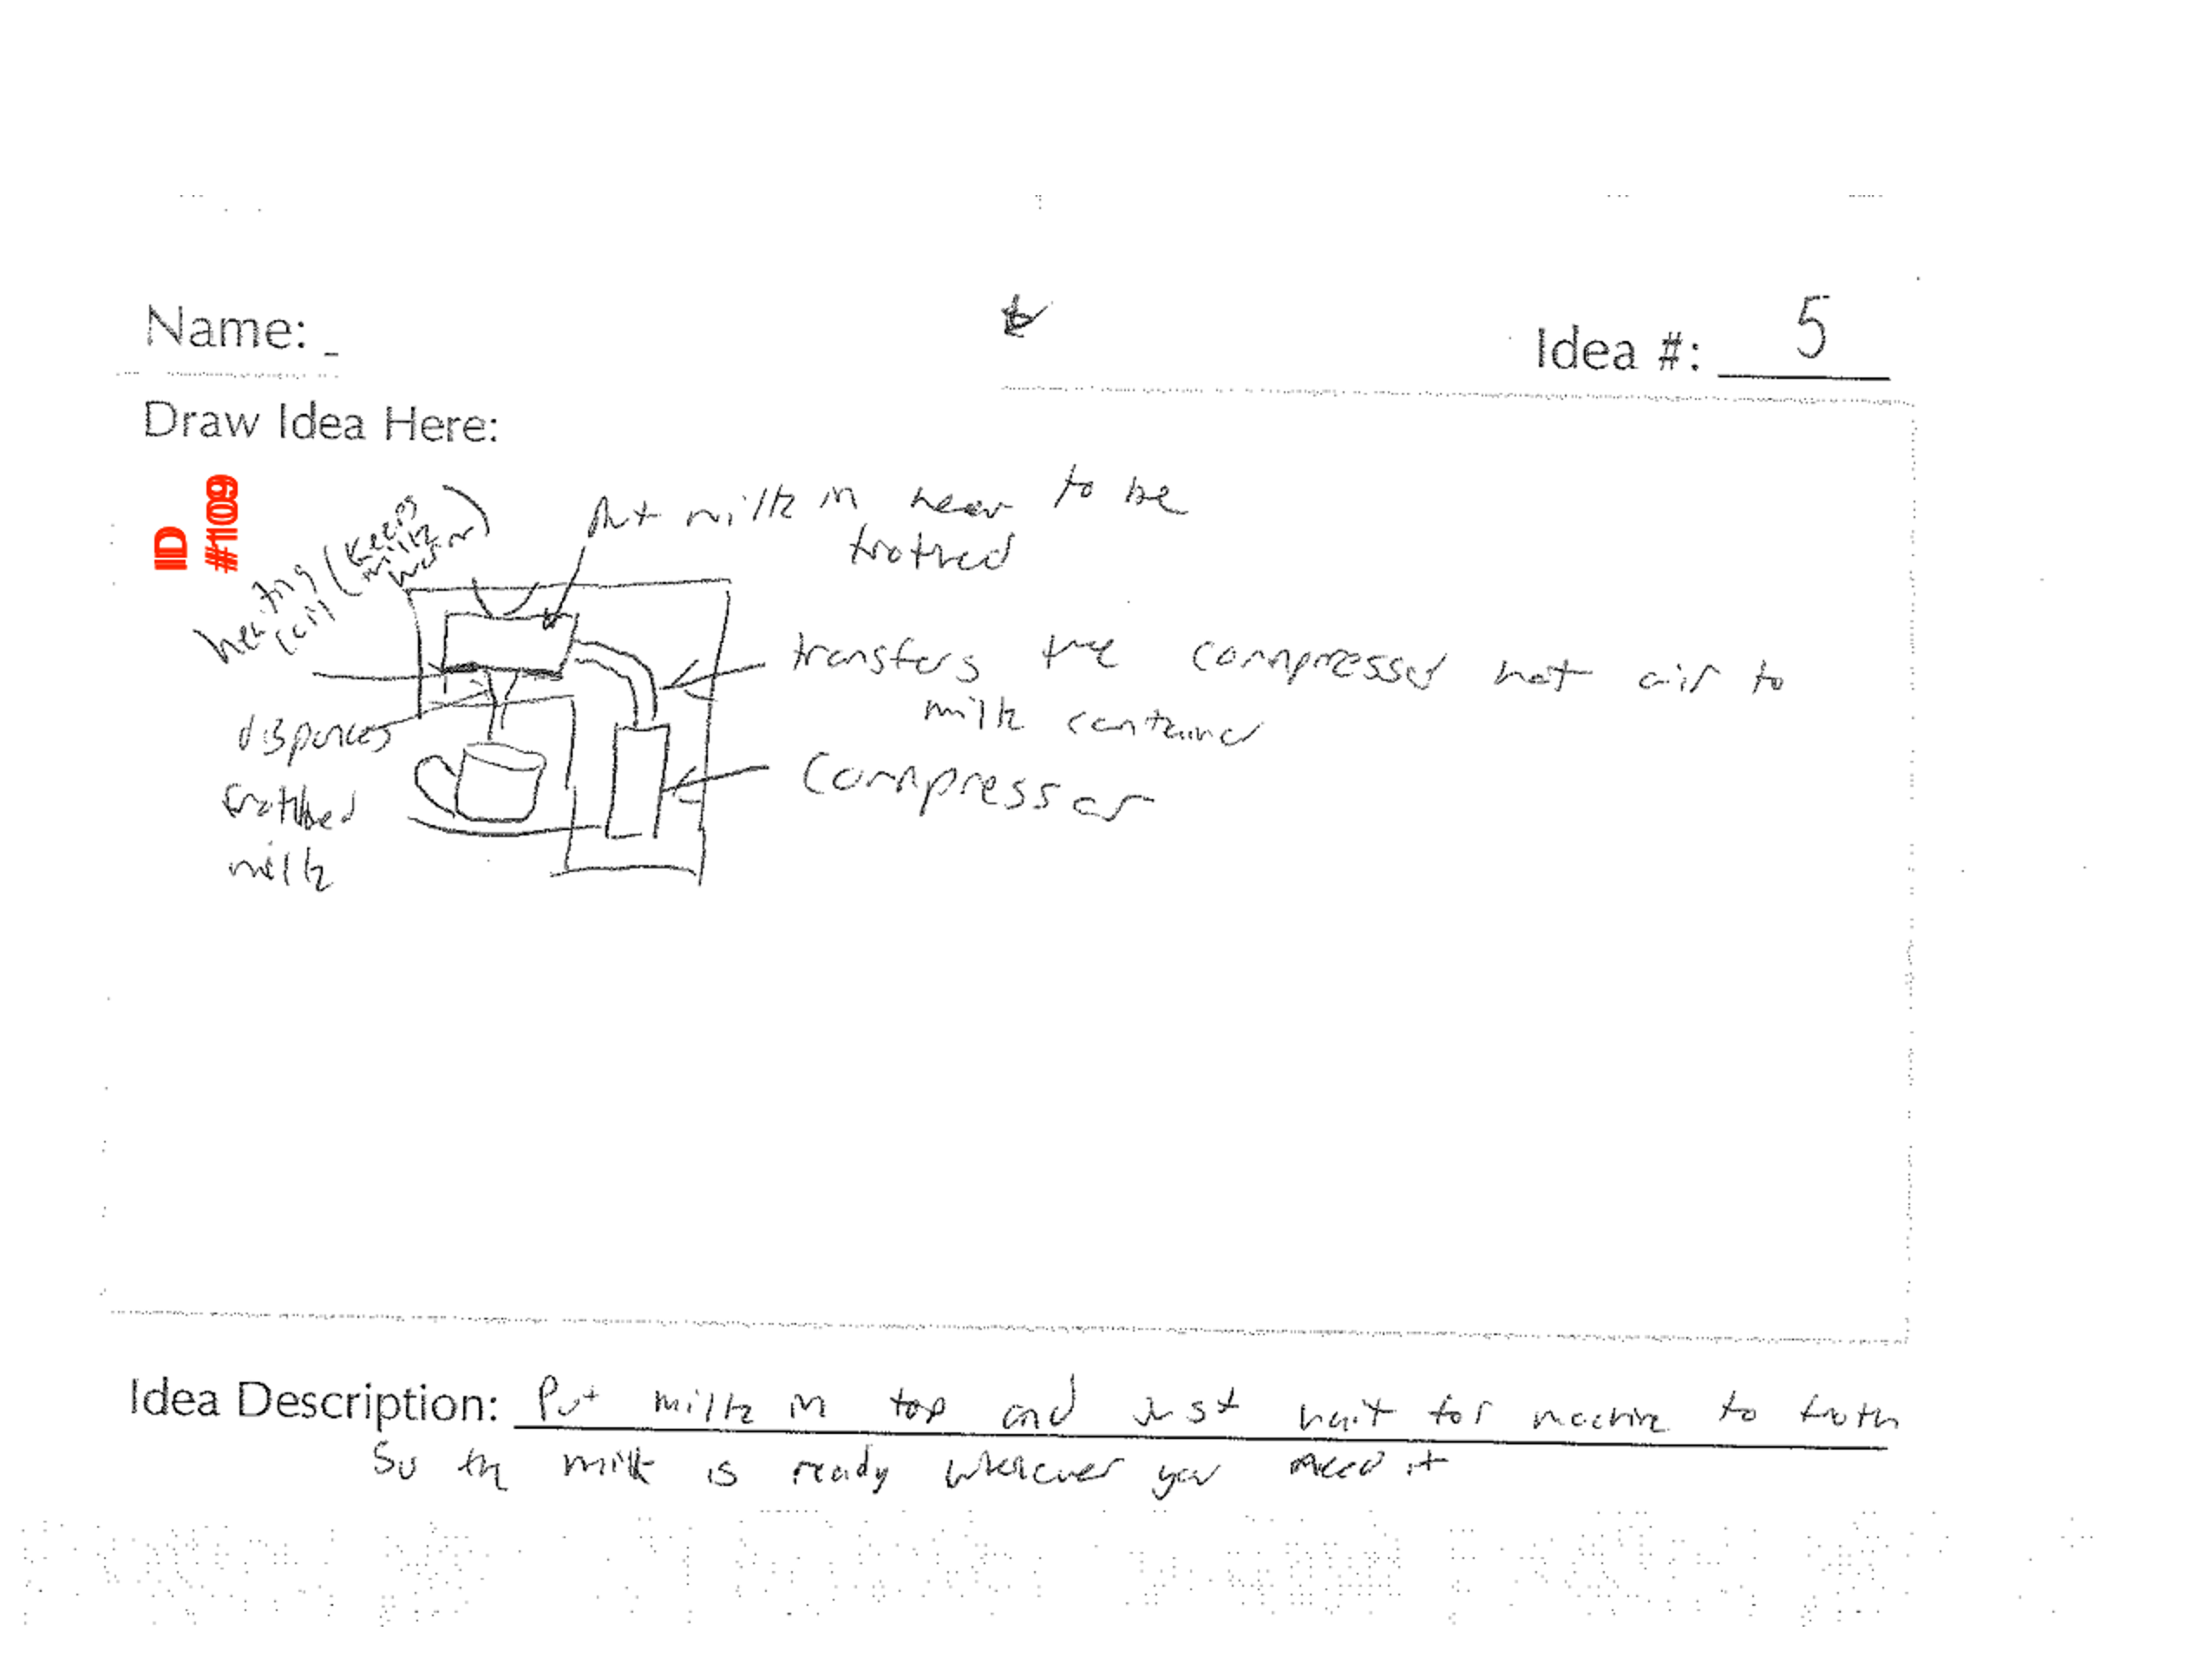 Name:
Idea #: 5
Draw Idea Here:
ID
#1109
heating coil (keeps
milk
warm)
Put milk in hear to be
frothed
transfers the compressed hot air to
milk container
dispences
frothed
milk
Compressor
Idea Description: Put milk in top and just wait for machine to froth
So the milk is ready whenever you need it